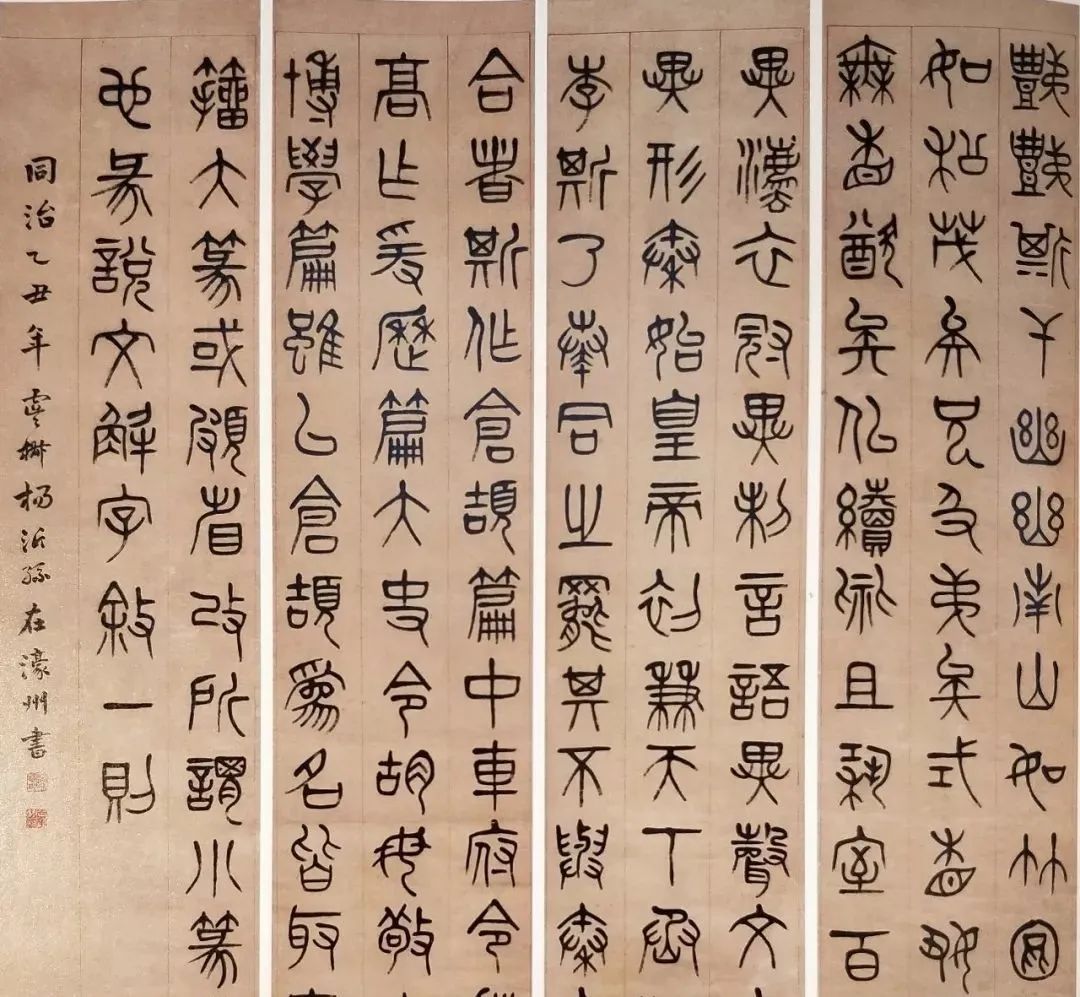 豑豑斯干幽幽南山如竹
如松茂矣兄及弟矣式相好
無相猷矣佀續妣且築室百
異灋衣冠異制言語異聲文
異形秦始皇帝初兼天丁丞
李斯乃奏同之罷其不與秦
合者斯作倉頡篇中車府令
高作爰歷篇大史令胡毋敬
博學篇雖以倉頡為名皆取
籀大篆或頗省改所謂小篆
也彔說文解字敘一則
同治乙丑年楊沂孫在濠州書